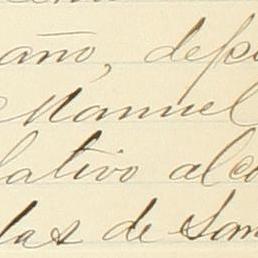 año, depo
Manuel
lativo al co
las de San